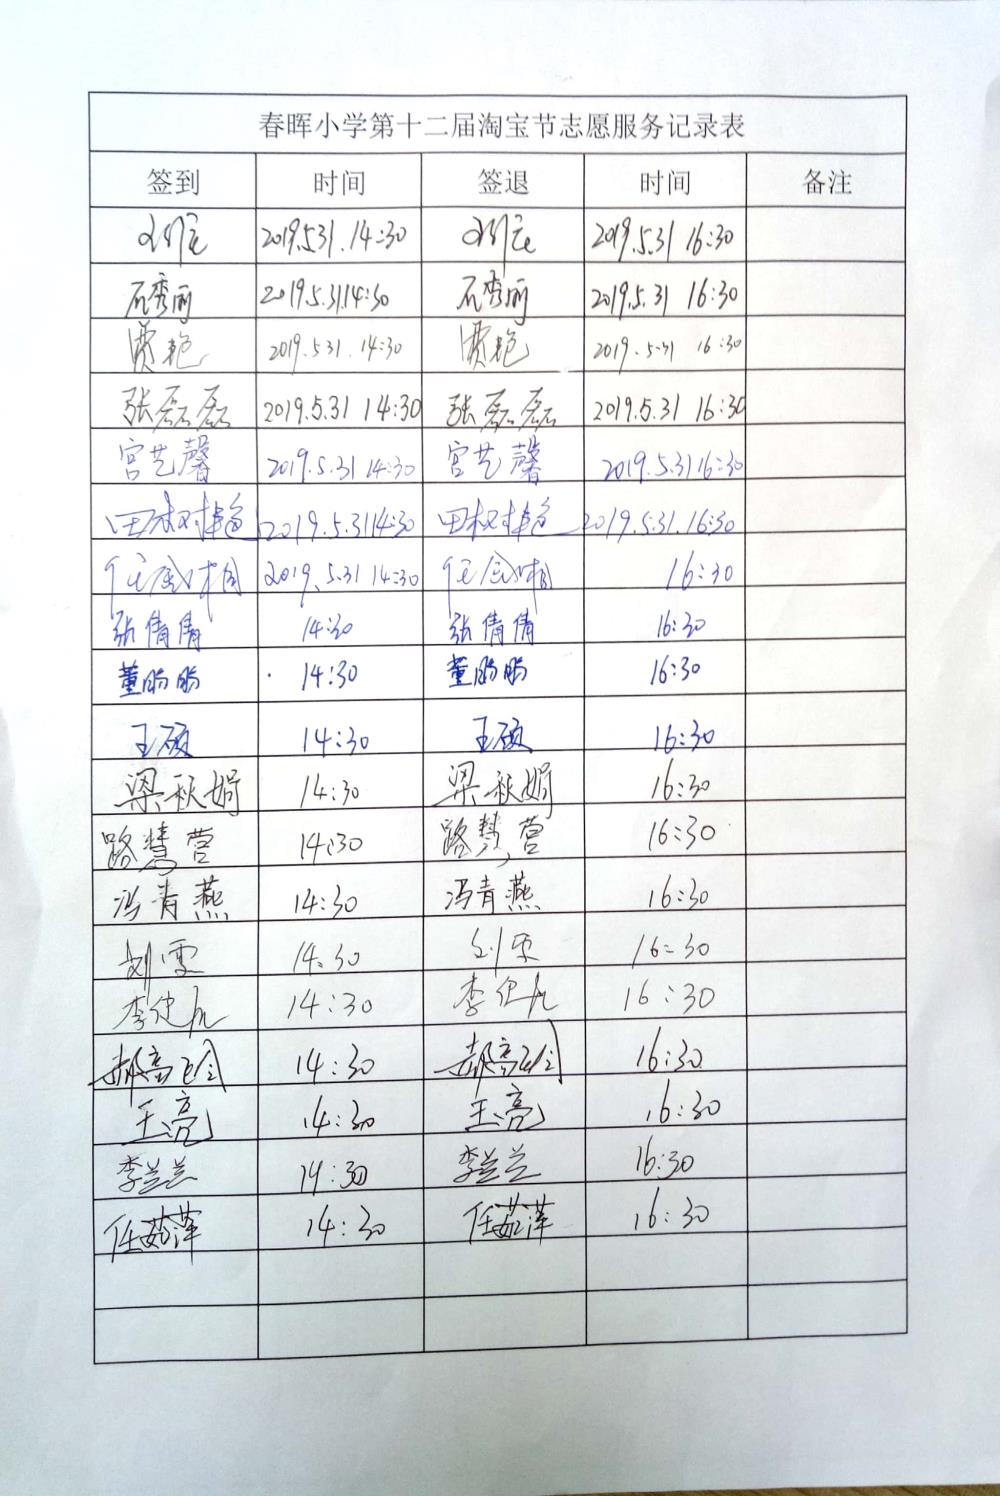 春晖小学第十二届淘宝节志愿服务记录表
签到 时间 签退 时间 备注
2019.5.31. 14:30 2019.5.31 16:30
石秀丽 2019.5.31 14:30 石秀丽 2019.5.31 16:30
贾艳 2019.5.31. 14:30 贾艳 2019.5.31 16:30
张磊磊 2019.5.31 14:30 张磊磊 2019.5.31 16:30
宫艺馨 2019.5.31 14:30 宫艺馨 2019.5.31 16:30
田树艳 2019.5.31 14:30 田树艳 2019.5.31.16:30
2019.5.31 14:30 16:30
张倩倩 14:30 张倩倩 16:30
董盼盼 14:30 董盼盼 16:30
王硕 14:30 王硕 16:30
梁秋娟 14:30 梁秋娟 16:30
路慧莹 14:30 路慧莹 16:30
冯青燕 14:30 冯青燕 16:30
刘雯 14:30 刘雯 16:30
14:30 16:30
14:30 16:30
王亮 14:30 王亮 16:30
李兰兰 14:30 李兰兰 16:30
任茹萍 14:30 任茹萍 16:30